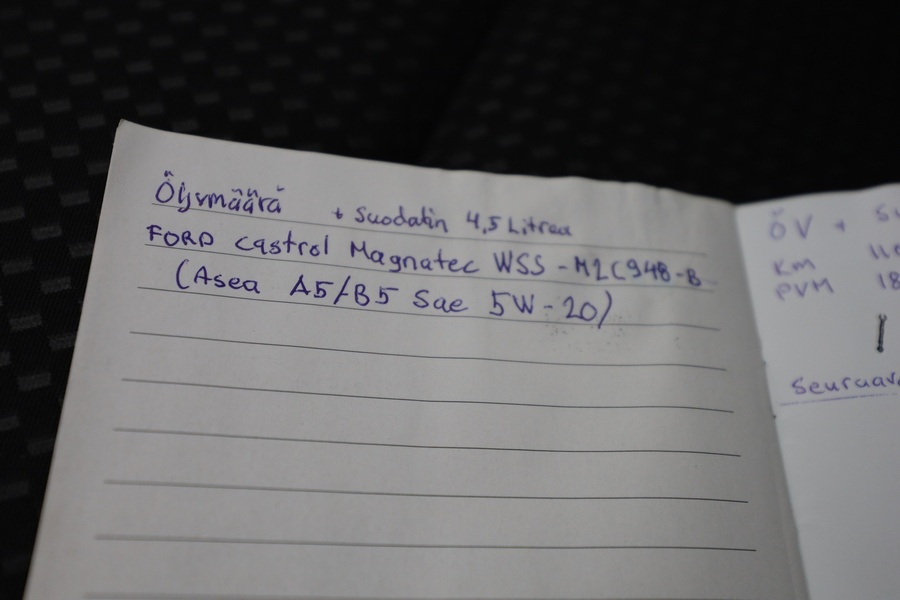 Öljymäärä + Suodatin 4,5 Litrea
FORD Castrol Magnatec WSS-M2C948-B
(Asea A5/B5 Sae 5W-20)
ÖV +
Km
PVM 18